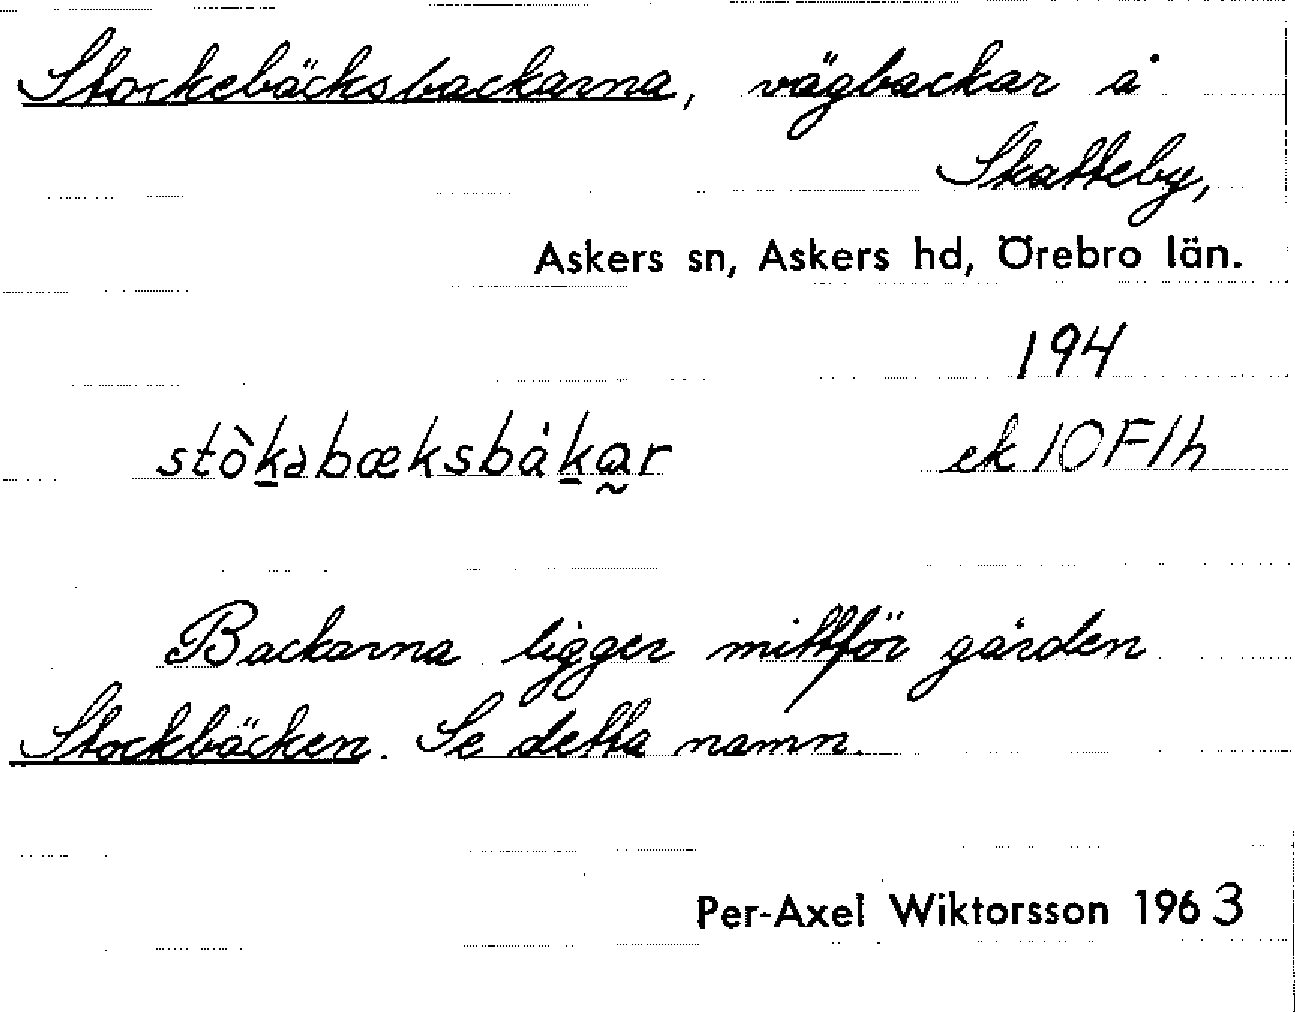 Stockebäcksbackarna, vägbackar å
Skatteby,
Askers sn, Askers hd, Örebro län.
194
stòk̠əbæksbàk̠a̰r ek 10F1h
Backarna ligger mittför gården
Stockbäcken. Se detta namn.
Per-Axel Wiktorsson 1963